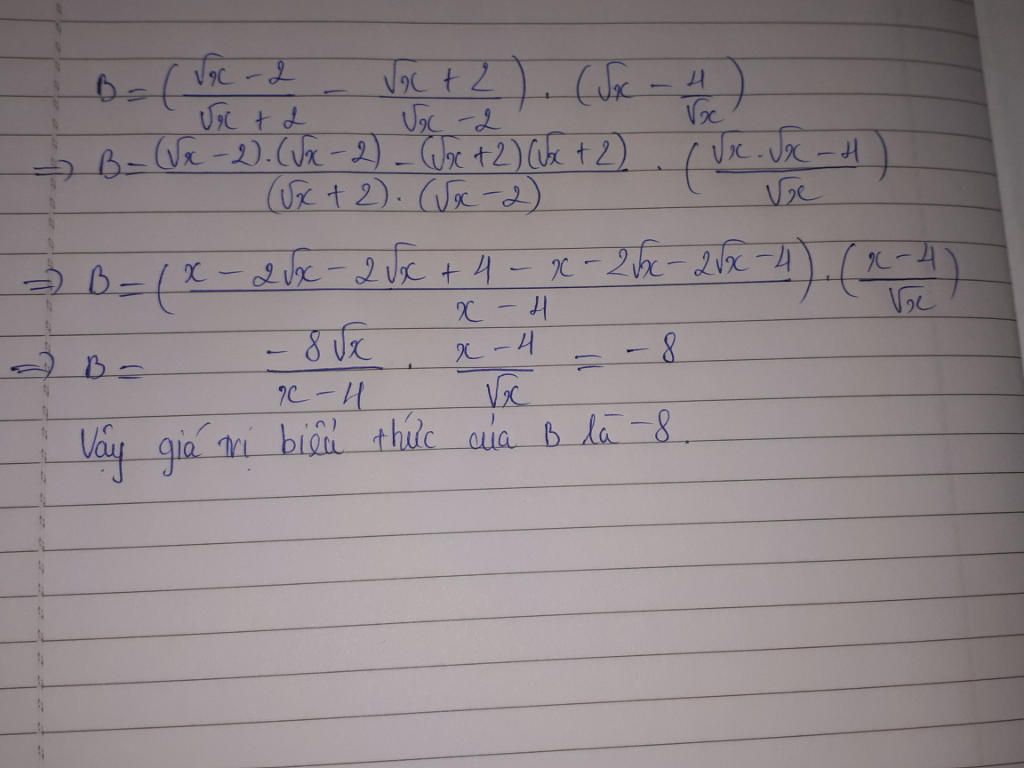 B = ( (√x - 2)/(√x + 2) - (√x + 2)/(√x - 2) ) . (√x - 4/√x)
⇒ B = ((√x - 2).(√x - 2) - (√x + 2)(√x + 2))/((√x + 2).(√x - 2)) . ((√x.√x - 4)/√x)
⇒ B = ((x - 2√x - 2√x + 4 - x - 2√x - 2√x - 4)/(x - 4)) . ((x - 4)/√x)
⇒ B = (-8√x)/(x - 4) . (x - 4)/√x = -8
Vậy giá trị biểu thức của B là -8.